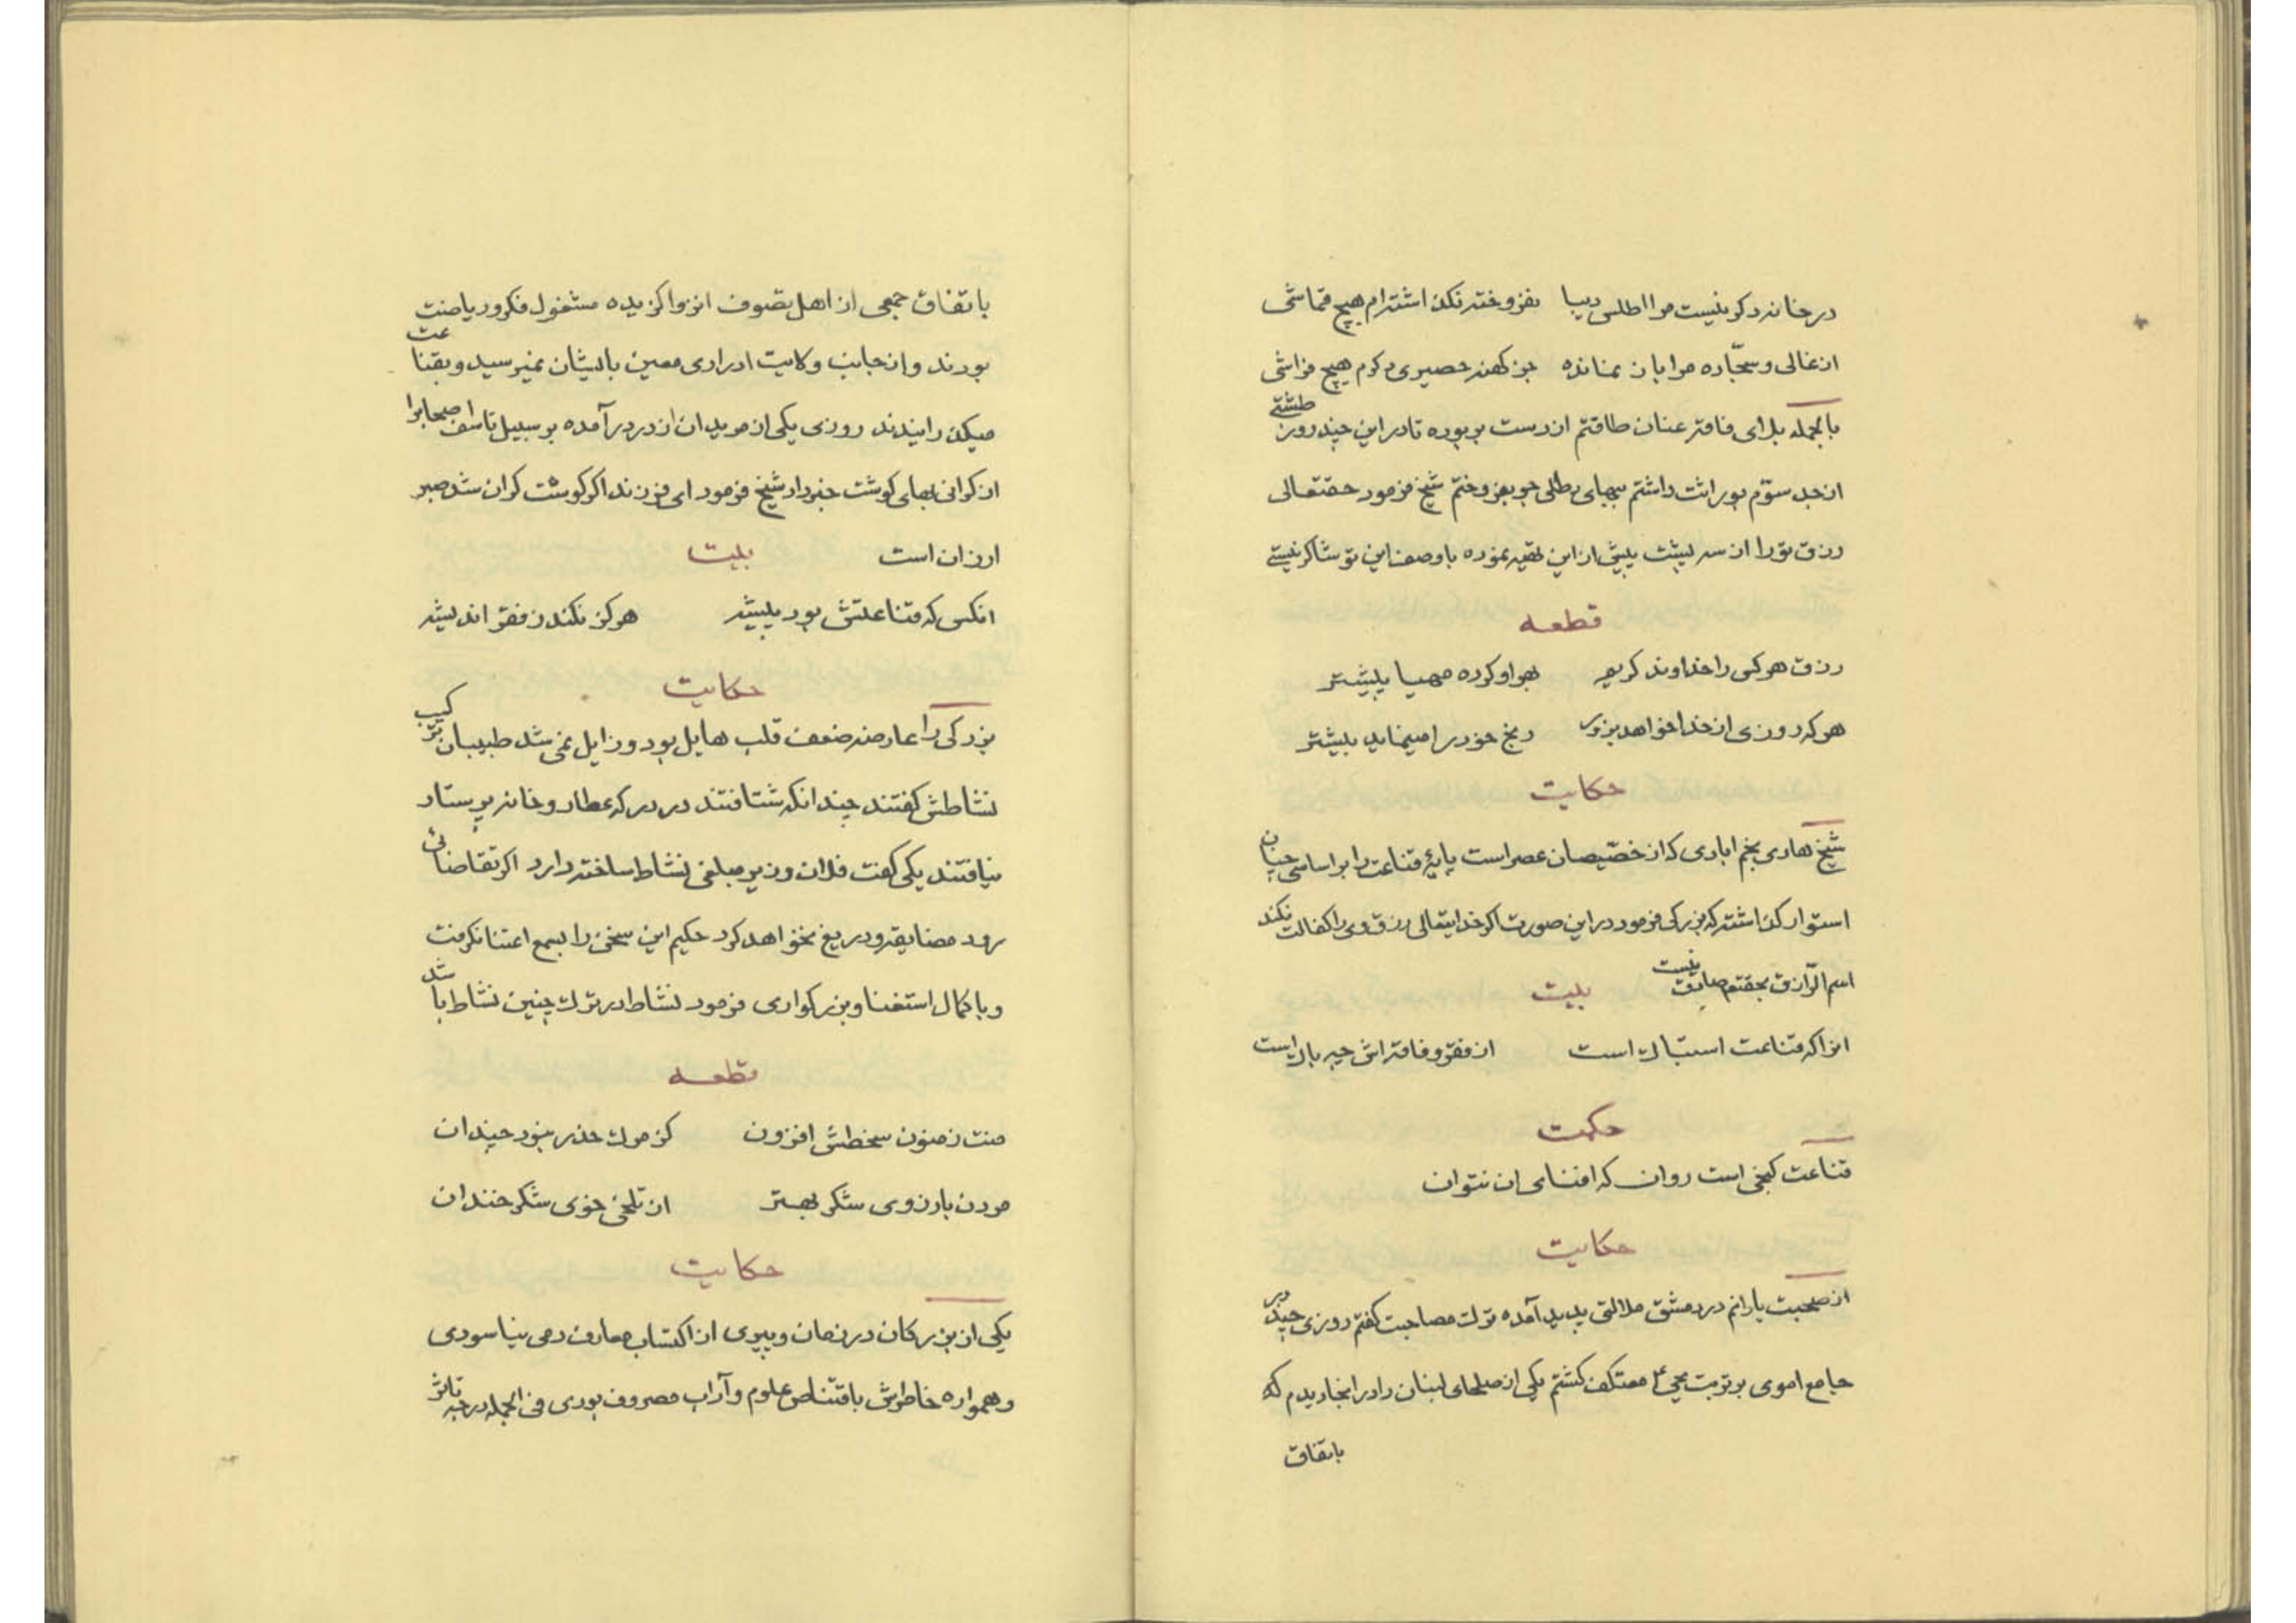 درخانه دکر نیست مرا اطلس دیبا بفروخته نکذاشته‌ام هیچ قماشی
از غالی و سجّاده مرا باز نمانده جز کهنه حصیری دکرم هیچ فراشی
بالجمله بلای فاقه عنان طاقتم از دست بربوده تا در این چند روز طشتی
از جد سوّم بوراثت داشتم ببهای رطلی جو بفروختم شیخ فرمود حقتعالی
رزق تو را از سه پیشت پیش از این تهیه نموده با وصف این تو شاکر نیستی
قطعه
رزق هر کس را خداوند کریم بهر او کرده مهیا پیشتر
هر که روزی از خدا خواهد بزور رنج خود را مینماید بیشتر
حکایت
شیخ هادی نجم ابادی که از خصّیصان عصر است پایهٔ قناعت را بر اساسی چنان
استوار کذاشته که بزرکی فرمود در این صورت اکر خدایتعالی رزق وی را کفالت نکند
اسم الرّازق بحقتعم صادق نیست بیت
انرا که قناعت است از فقر و فاقه‌اش چه باک است
حکمت
قناعت کنجی است روان که افنای ان نتوان
حکایت
از صحبت یارانم در دمشق ملالتی پدید آمده ترک مصاحبت کفتم روزی چند در
جامع اموی بر تربت یحیی ع معتکف کشتم یکی از صلحای لبنان را در انجا دیدم که
باتفاق
باتفاق جمعی از اهل تصوف انزوا کزیده مشغول فکر و ریاضت
بودند و از جانب ولایت ادراری معین بایشان نمیرسید و بقناعت
میکذرانیدند روزی یکی از مریدان از در درآمده بر سبیل تاسف اصحابرا
از کرانی بهای کوشت خبر داد شیخ فرمود ای فرزند اکر کوشت کران شد صبر
ارزان است بیت
انکس که قناعتش بود پیشه هرکز نکند ز فقر اندیشه
حکایت
بزرکی را عارضه ضعف قلب هایل بود و زایل نمی شد طبیبان ترکیب
نشاطش کفتند چندانکه شتافتند در درکه عطار و خانه پرستار
نیافتند یکی کفت فلان وزیر مبلغی نشاط ساخته دارد اکر تقاضائی
رود مضایقه و دریغ نخواهد کرد حکیم این سخن را بسمع اعتنا نکرفت
و با کمال استغنا و بزرکواری فرمود نشاط در ترک چنین نشاط باشد
قطعه
منت ز فزون سخطش افزون کز مرک حذر نبود چندان
مردن بارزوی شکر بهتر از تلخی خوی شکر خندان
حکایت
یکی از بزرکان در زمان پیری از اکتساب معارف دمی نیاسودی
و همواره خاطرش باقتناص علوم و آداب مصروف بودی فی الجمله درجه تاثر